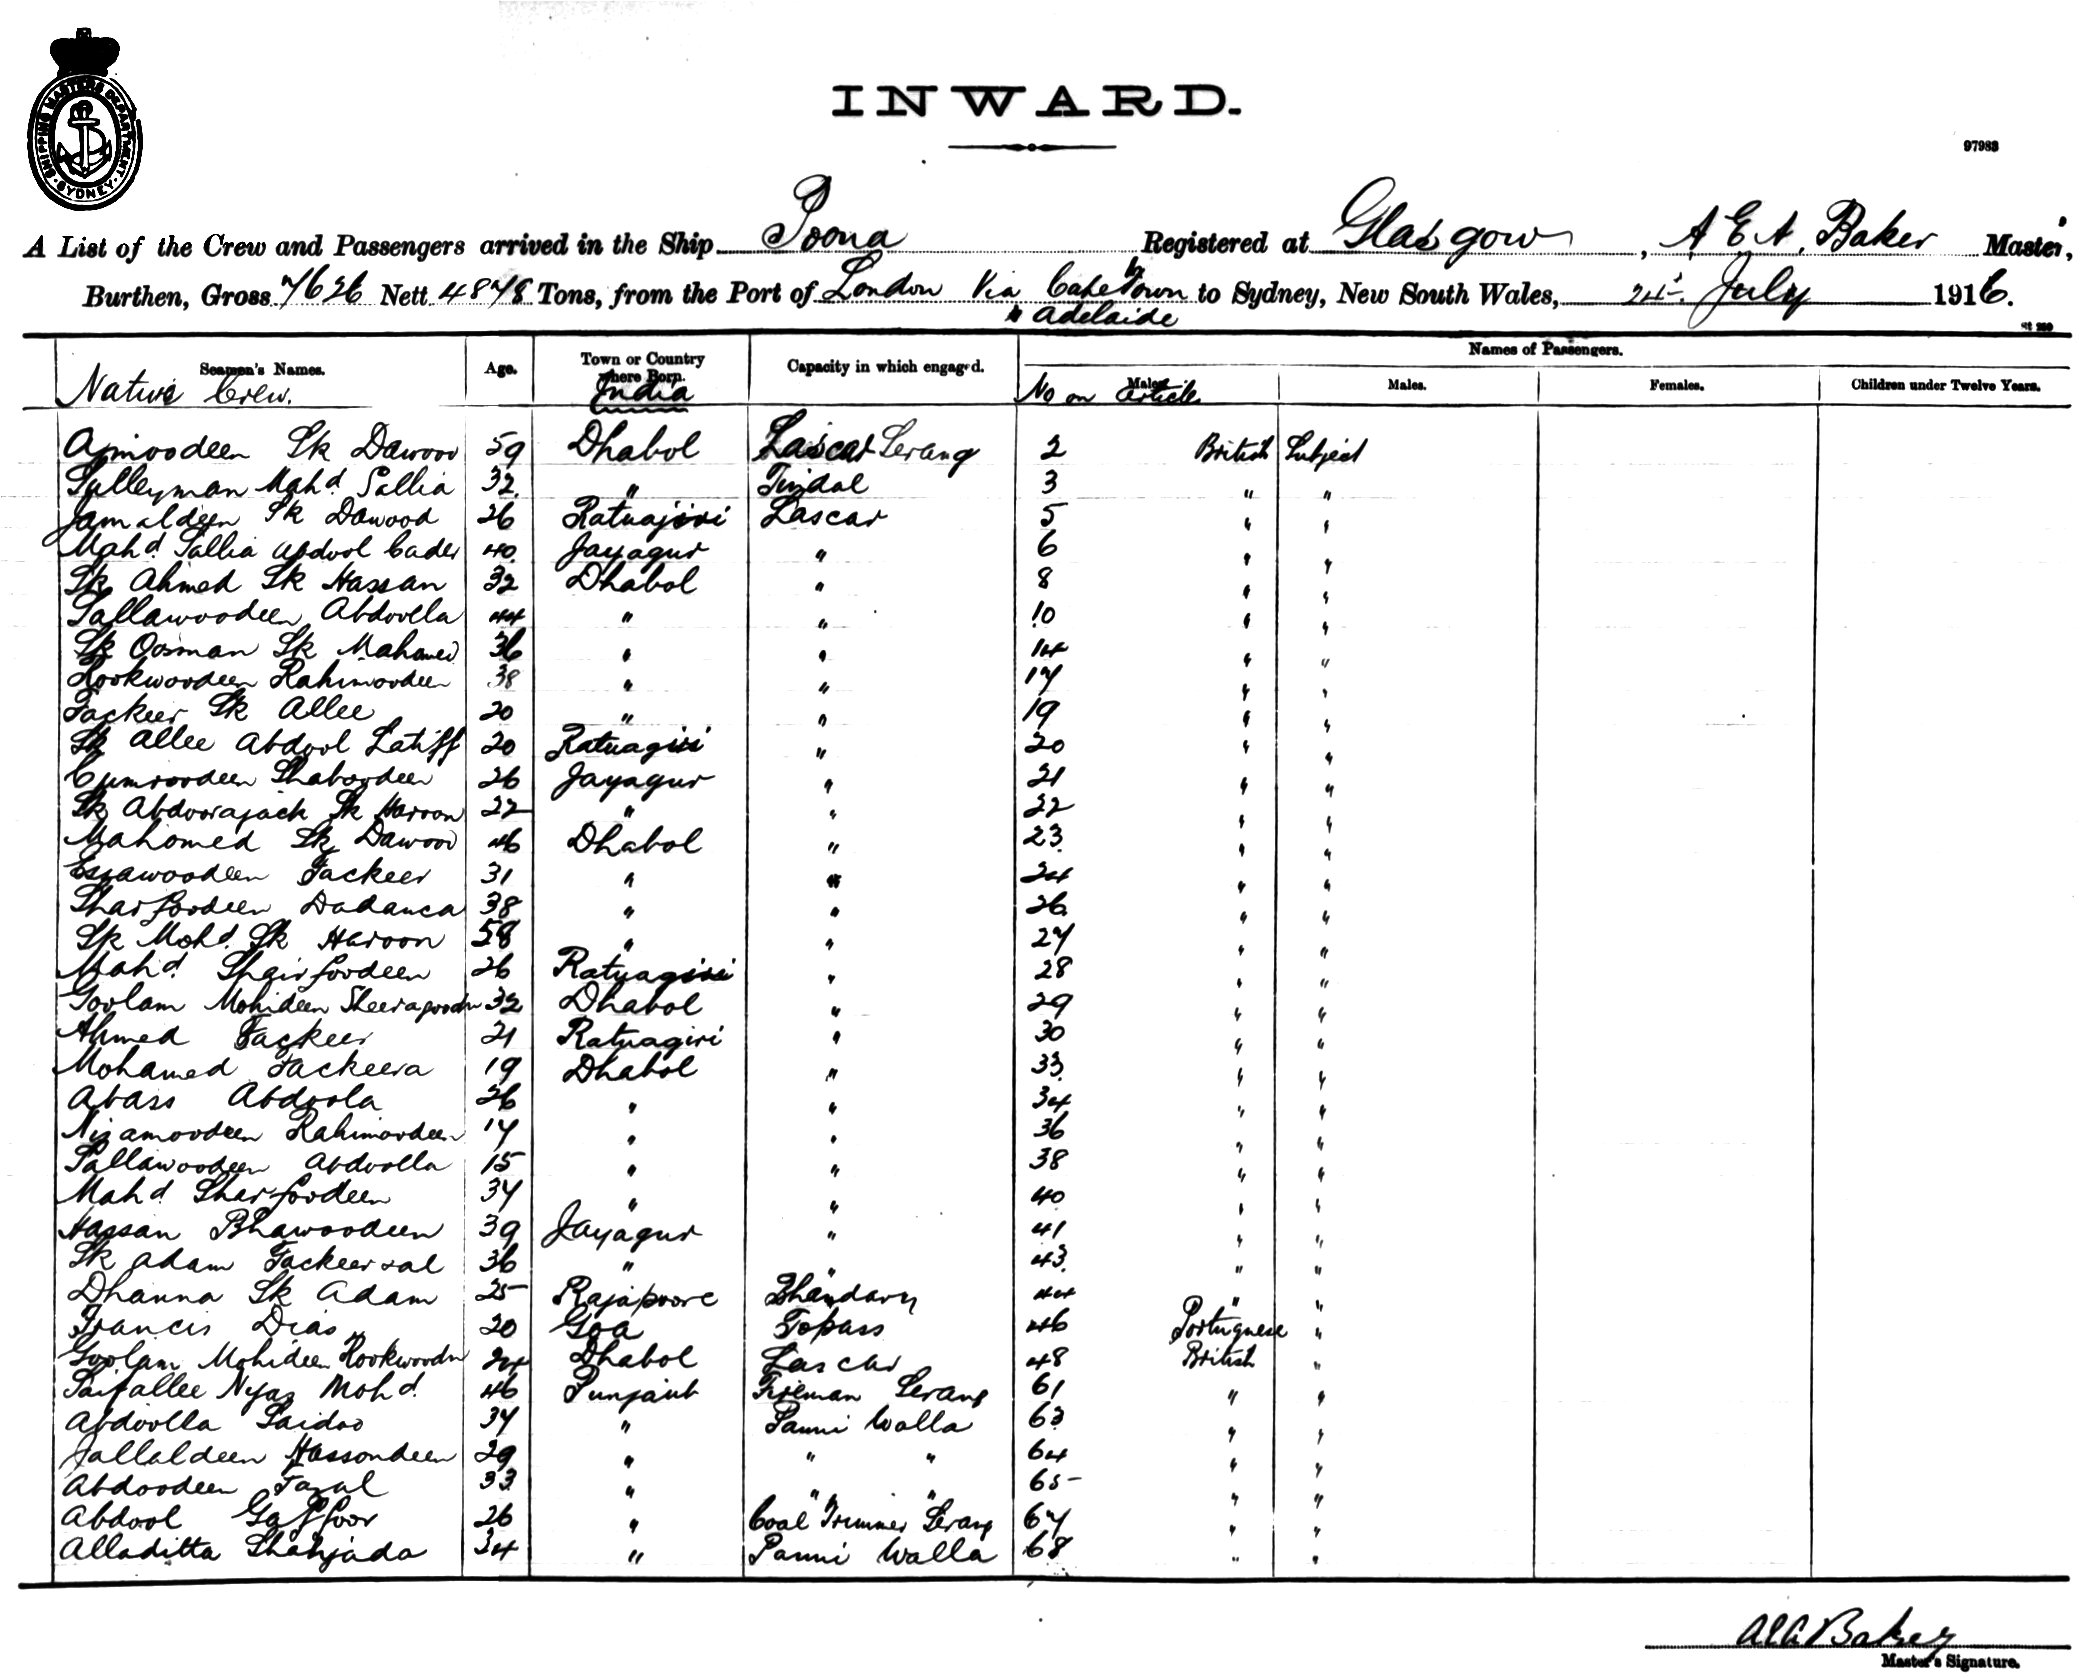 SHIPPING MASTERS DEPARTMENT
SYDNEY
INWARD.
97983
A List of the Crew and Passengers arrived in the Ship Poona Registered at Glasgow, A E A. Baker Master,
Burthen, Gross 7626 Nett 4878 Tons, from the Port of London Via Cape Town to Sydney, New South Wales, July 1916.
Adelaide
Names of Passengers.
Seamen's Names. Age. Town or Country where Born. Capacity in which engaged. Males. Males. Females. Children under Twelve Years.
Native Crew. India No on Article
Ajmoodeen Sk Dawood 59 Dhabol Lascar Serang 2 British Subject
Sulleyman Mahd. Sallia 32 " Tindal 3 " "
Jamaldeen Sk Dawood 26 Ratnajiri Lascar 5 " "
Mahd. Sallia Abdool Cader 40 Jayagur " 6 " "
Sk Ahmed Sk Hassan 32 Dhabol " 8 " "
Sallawoodeen Abdoolla 44 " " 10 " "
Sk Oosman Sk Mahomed 36 " " 14 " "
Rookwoodeen Rahimoodeen 38 " " 17 " "
Fackeer Sk Allee 20 " " 19 " "
Sk Allee Abdool Latiff 20 Ratnagiri " 20 " "
Cumroodeen Shaboodeen 26 Jayagur " 21 " "
Sk Abdoorajack Sk Haroon 22 " " 22 " "
Mahomed Sk Dawood 46 Dhabol " 23 " "
Essawoodeen Fackeer 31 " " 24 " "
Sharfoodeen Dadanca 38 " " 26 " "
Sk Mohd. Sk Haroon 58 " " 27 " "
Mahd. Shairfoodeen 26 Ratnagiri " 28 " "
Goolam Mohideen Sheeragoodn 32 Dhabol " 29 " "
Ahmed Fackeer 21 Ratnagiri " 30 " "
Mohamed Fackeera 19 Dhabol " 33 " "
Abass Abdoola 26 " " 34 " "
Nijamoodeen Rahimoodeen 17 " " 36 " "
Sallawoodeen Abdoolla 15 " " 38 " "
Mahd. Sharfoodeen 37 " " 40 " "
Hassan Bhawoodeen 39 Jayagur " 41 " "
Sk Adam Fackeersal 36 " " 43 " "
Dhanna Sk Adam 25 Rajapoore Bhandary 44 " "
Francis Dias 20 Goa Topass 46 Portuguese "
Goolam Mohideen Rookwoodn 24 Dhabol Lascar 48 British "
Saifallee Nyas Mohd. 46 Punjaub Fireman Serang 61 " "
Abdoolla Saidoo 37 " Panni Walla 63 " "
Jallaldeen Hassondeen 29 " " " 64 " "
Abdoodeen Fazal 33 " " " 65 " "
Abdool Gaffoor 26 " Coal Trimmer Serang 67 " "
Alladitta Shahjada 34 " Panni Walla 68 " "
AEA Baker
Master's Signature.